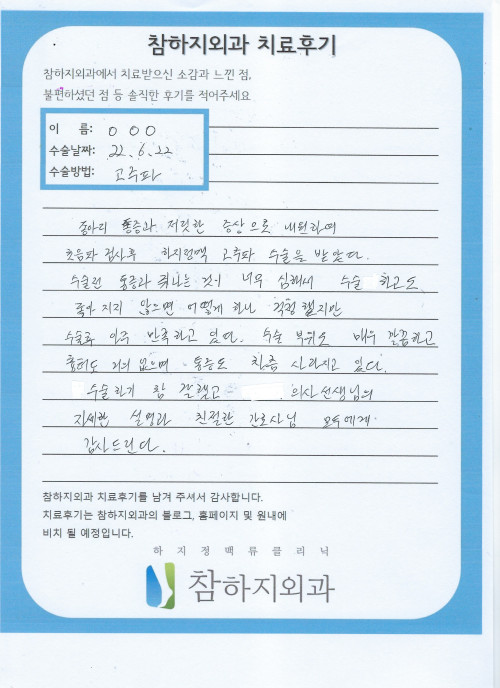 참하지외과 치료후기
참하지외과에서 치료받으신 소감과 느낀 점,
불편하셨던 점 등 솔직한 후기를 적어주세요
이 름: 000
수술날짜: 22.6.22
수술방법: 고주파
종아리 통증과 저릿한 증상으로 내원하여
초음파 검사후 하지정맥 고주파 수술을 받았다.
수술전 통증과 쥐나는 것이 너무 심해서 수술 하고도
좋아 지지 않으면 어떻게 하나 걱정 했지만
수술후 아주 만족하고 있다. 수술 부위도 매우 깔끔하고
흉터도 거의 없으며 통증도 차츰 사라지고 있다.
수술하기 참 잘했고 의사선생님의
자세한 설명과 친절한 간호사님 모두에게
감사드린다.
참하지외과 치료후기를 남겨 주셔서 감사합니다.
치료후기는 참하지외과의 블로그, 홈페이지 및 원내에
비치 될 예정입니다.
하지정맥류클리닉
참하지외과